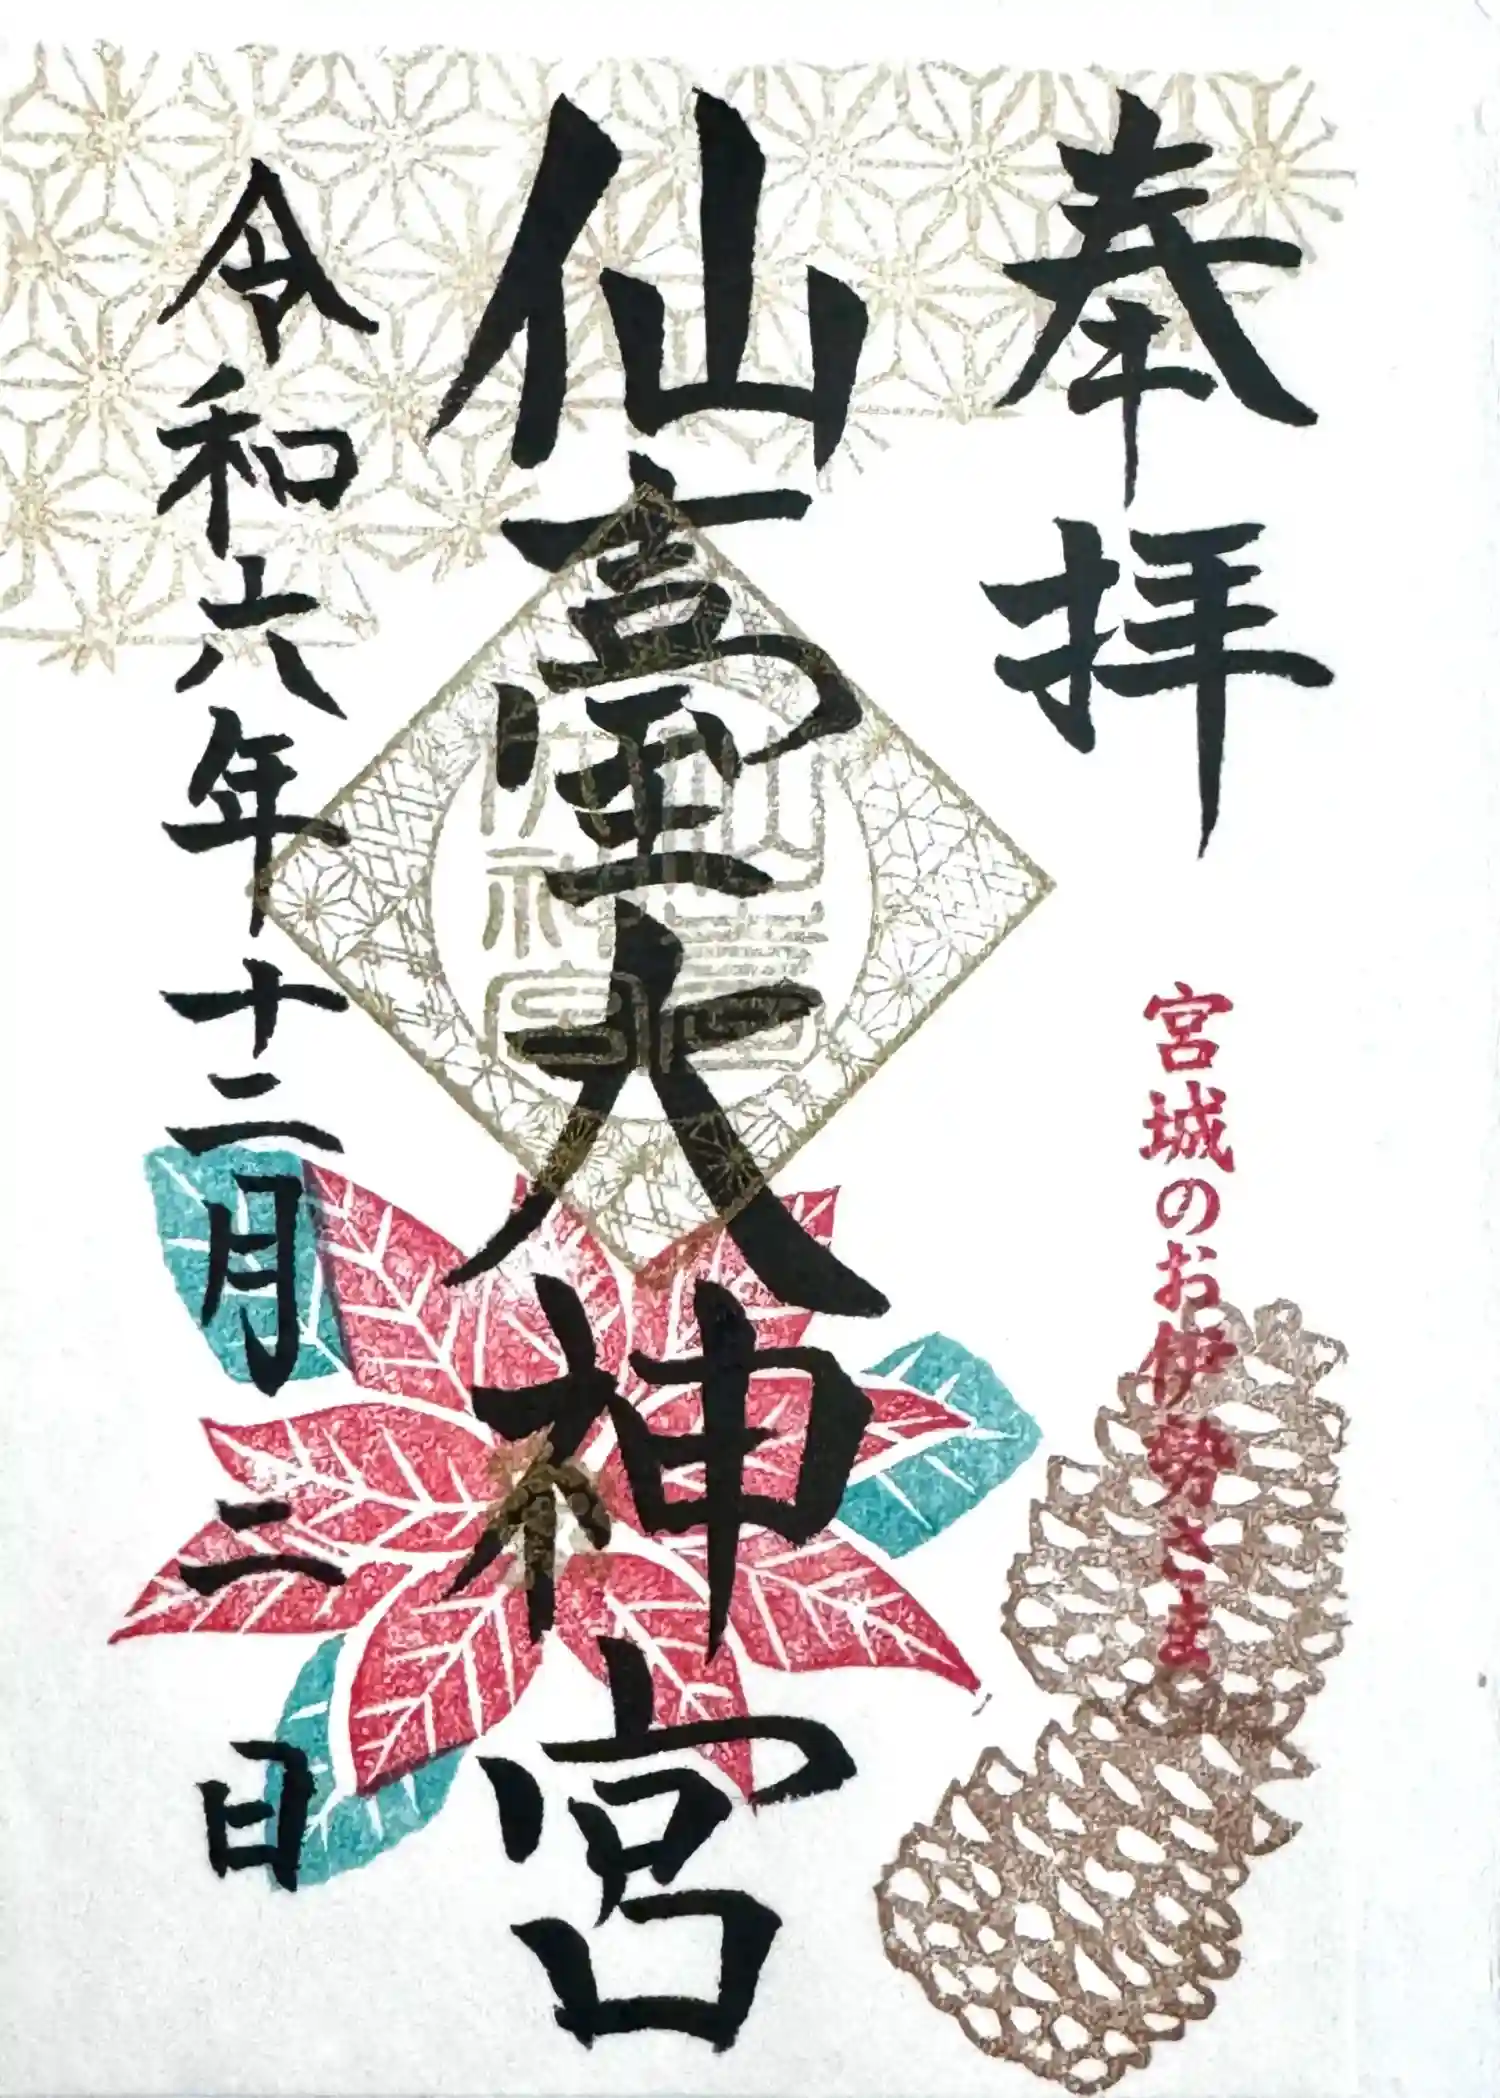 奉拝
宮城のお伊勢さま
仙臺大神宮
仙臺大神宮
令和六年十二月二日